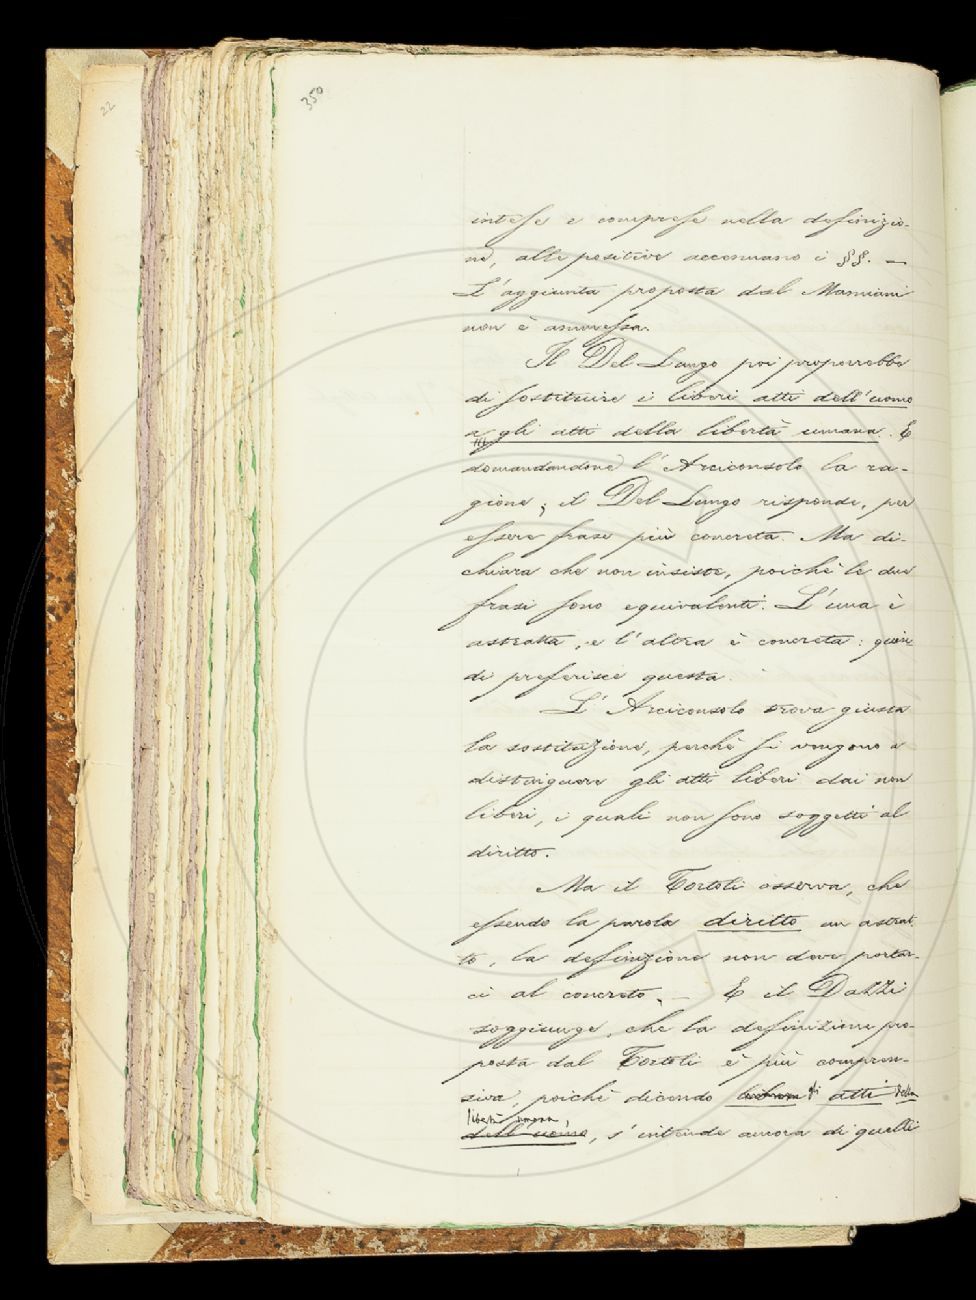 22
350
intese e comprese nella definizio-
ne, alle positive accennano i §§. —
L'aggiunta proposta dal Mamiani
non è ammessa.
Il Del Lungo poi proporrebbe
di sostituire i liberi atti dell'uomo
a gli atti della libertà umana. E
domandandone l'Arciconsolo la ra-
gione; il Del Lungo risponde, per
essere frase più concreta. Ma di-
chiara che non insiste, poichè le due
frasi sono equivalenti. L'una è
astratta, e l'altra è concreta: quin-
di preferisce questa.
L'Arciconsolo trova giusta
la sostituzione, perchè si vengono a
distinguere gli atti liberi dai non
liberi, i quali non sono soggetti al
diritto.
Ma il Tortoli osserva, che
essendo la parola diritto un astrat-
to, la definizione non deve portar-
ci al concreto. — E il Dazzi
soggiunge, che la definizione pro-
posta dal Tortoli è più compren-
siva, poichè dicendo gli atti della
libertà umana
dell'uomo, s'intende ancora di quelli